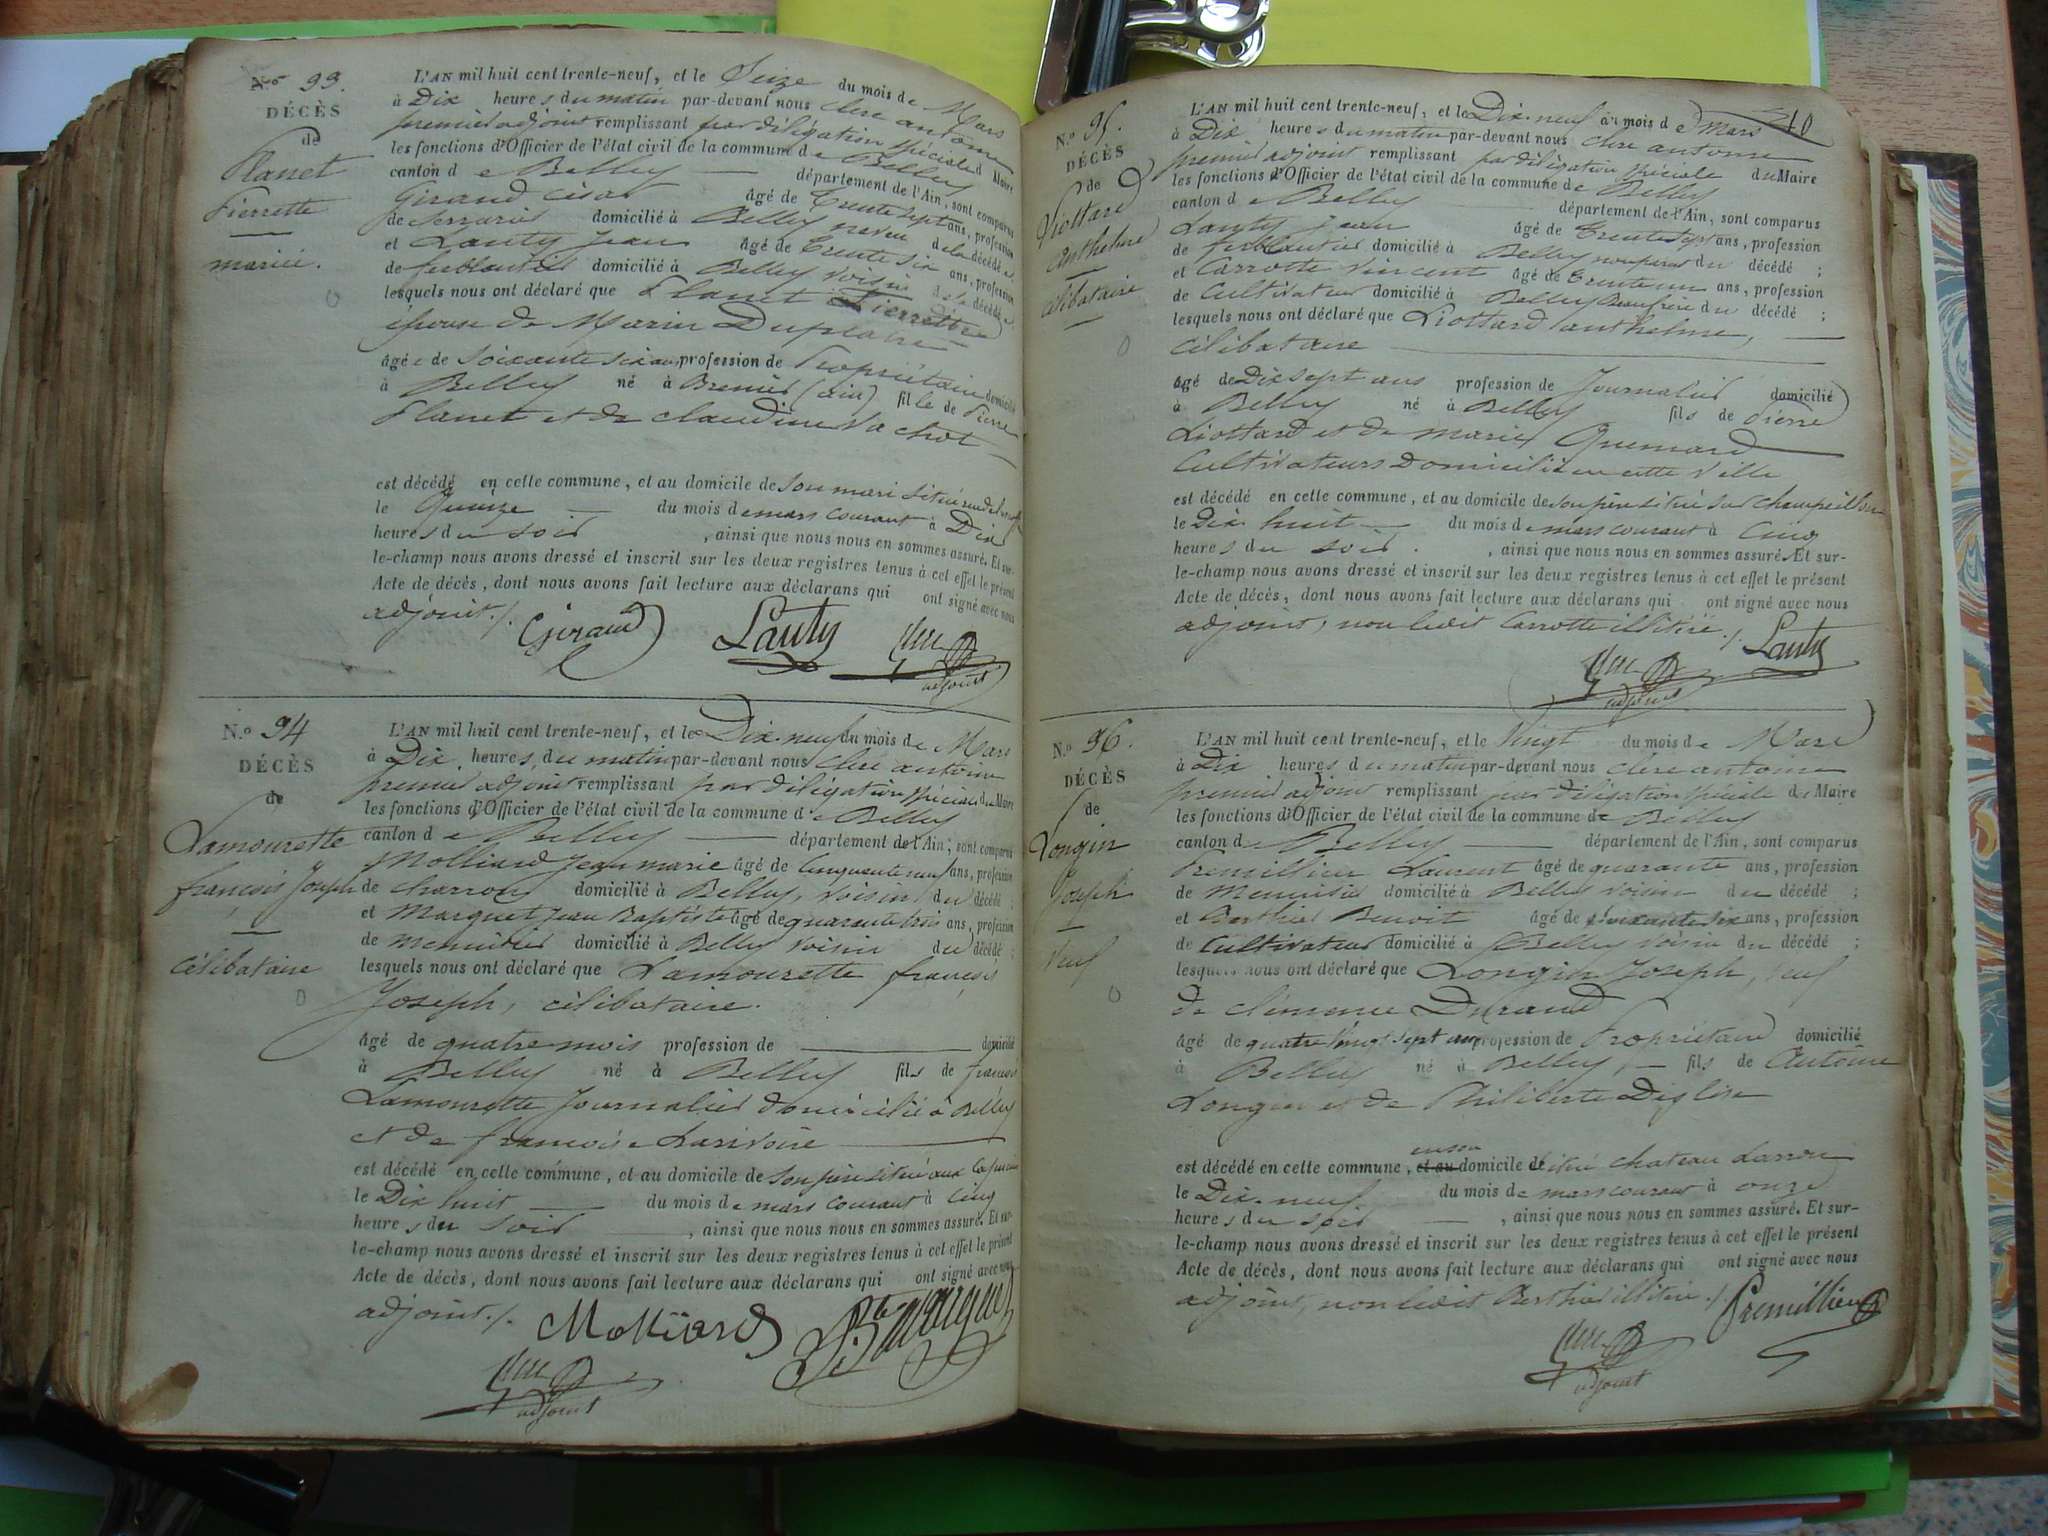 No 93.
DÉCÈS
de
Planet
Pierrette
mariée.
L'AN mil huit cent trente-neuf, et le Seize du mois de Mars
à Dix heures du matin par-devant nous Clerc antoine
premier adjoint remplissant par délégation spéciale du Maire
les fonctions d'Officier de l'état civil de la commune de Belley
canton de Belley département de l'Ain, sont comparus
Giraud César âgé de Trente sept ans, profession
de Serrurier domicilié à Belley neveu de la décédée
et Lauty Jean âgé de Trente six ans, profession
de ferblantier domicilié à Belley voisin de la décédée
lesquels nous ont déclaré que Planet Pierrette
épouse de Marin Duplatre
âgée de soixante six ans profession de Propriétaire domicilié
à Belley né à Brenier (ain) fille de Pierre
Planet et de claudine Vachot
est décédé en cette commune, et au domicile de son mari situé rue
le Quinze du mois de mars courant à Dix
heures du soir, ainsi que nous nous en sommes assuré. Et sur-
le-champ nous avons dressé et inscrit sur les deux registres tenus à cet effet le présent
Acte de décès, dont nous avons fait lecture aux déclarans qui ont signé avec nous
adjoint./.
Giraud Lauty Clerc
adjoint
N.o 94
DÉCÈS
de
Lamourette
françois Joseph
célibataire
L'AN mil huit cent trente-neuf, et le Dix-neuf du mois de Mars
à Dix heures du matin par-devant nous Clerc antoine
premier adjoint remplissant par délégation spéciale du Maire
les fonctions d'Officier de l'état civil de la commune de Belley
canton de Belley département de l'Ain, sont comparus
Molliard Jean marie âgé de Cinquante neuf ans, profession
de charron domicilié à Belley, voisin du décédé ;
et Marquet Jean Baptiste âgé de quarante trois ans, profession
de menuisier domicilié à Belley voisin du décédé ;
lesquels nous ont déclaré que Lamourette françois
Joseph, célibataire.
âgé de quatre mois profession de domicilié
à Belley né à Belley fils de françois
Lamourette Journalier domicilié à Belley
et de francoise Larivoire
est décédé en cette commune, et au domicile de son père situé aux Capucins
le Dix huit du mois de mars courant à Cinq
heures du soir, ainsi que nous nous en sommes assuré. Et sur-
le-champ nous avons dressé et inscrit sur les deux registres tenus à cet effet le présent
Acte de décès, dont nous avons fait lecture aux déclarans qui ont signé avec nous
adjoint./.
Molliard J. Bte Marquet
Clerc
adjoint
40
N.o 95.
DÉCÈS
de
Liottard
anthelme
célibataire
L'AN mil huit cent trente-neuf, et le Dix-neuf du mois de Mars
à Dix heures du matin par-devant nous Clerc antoine
premier adjoint remplissant par délégation spéciale du Maire
les fonctions d'Officier de l'état civil de la commune de Belley
canton de Belley département de l'Ain, sont comparus
Lauty jean âgé de Trente sept ans, profession
de ferblantier domicilié à Belley non parent du décédé ;
et Carrotte Vincent âgé de Trente un ans, profession
de Cultivateur domicilié à Belley Beaufrère du décédé ;
lesquels nous ont déclaré que Liottard anthelme,
célibataire
âgé de Dix sept ans profession de Journalier domicilié
à Belley né à Belley fils de Pierre
Liottard et de marie Quemard
Cultivateurs Domiciliés en cette Ville
est décédé en cette commune, et au domicile de son père situé sur
le Dix huit du mois de mars courant à Cinq
heures du soir., ainsi que nous nous en sommes assuré. Et sur-
le-champ nous avons dressé et inscrit sur les deux registres tenus à cet effet le présent
Acte de décès, dont nous avons fait lecture aux déclarans qui ont signé avec nous
adjoint, non ledit Carrotte illitéré./. Lauty
Clerc
adjoint
N.o 96.
DÉCÈS
de
Longin
Joseph
Veuf
L'AN mil huit cent trente-neuf, et le Vingt du mois de Mars
à Dix heures du matin par-devant nous Clerc antoine
premier adjoint remplissant par délégation spéciale du Maire
les fonctions d'Officier de l'état civil de la commune de Belley
canton de Belley département de l'Ain, sont comparus
Premillieu Laurent âgé de quarante ans, profession
de Menuisier domicilié à Belley voisin du décédé ;
et Berthier Benoit âgé de soixante six ans, profession
de Cultivateur domicilié à Belley voisin du décédé ;
lesquels nous ont déclaré que Longin Joseph, Veuf
de clémence Durand
âgé de quatre Vingt sept ans profession de Propriétaire domicilié
à Belley né à Belley, fils de Antoine
Longin et de Philiberte Diglise
est décédé en cette commune, en son domicile situé chateau Larron
le Dix-neuf du mois de mars courant à onze
heures du soir, ainsi que nous nous en sommes assuré. Et sur-
le-champ nous avons dressé et inscrit sur les deux registres tenus à cet effet le présent
Acte de décès, dont nous avons fait lecture aux déclarans qui ont signé avec nous
adjoint, non ledit Berthier illitéré./. Premillieu
Clerc
adjoint